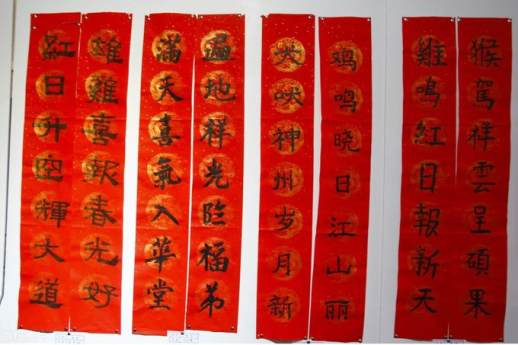 猴駕祥雲呈碩果
雞鳴紅日報新天
鸡鸣晓日江山丽
犬吠神州岁月新
遍地祥光臨福弟
滿天喜氣入華堂
雄雞喜報春光好
紅日升空輝大道